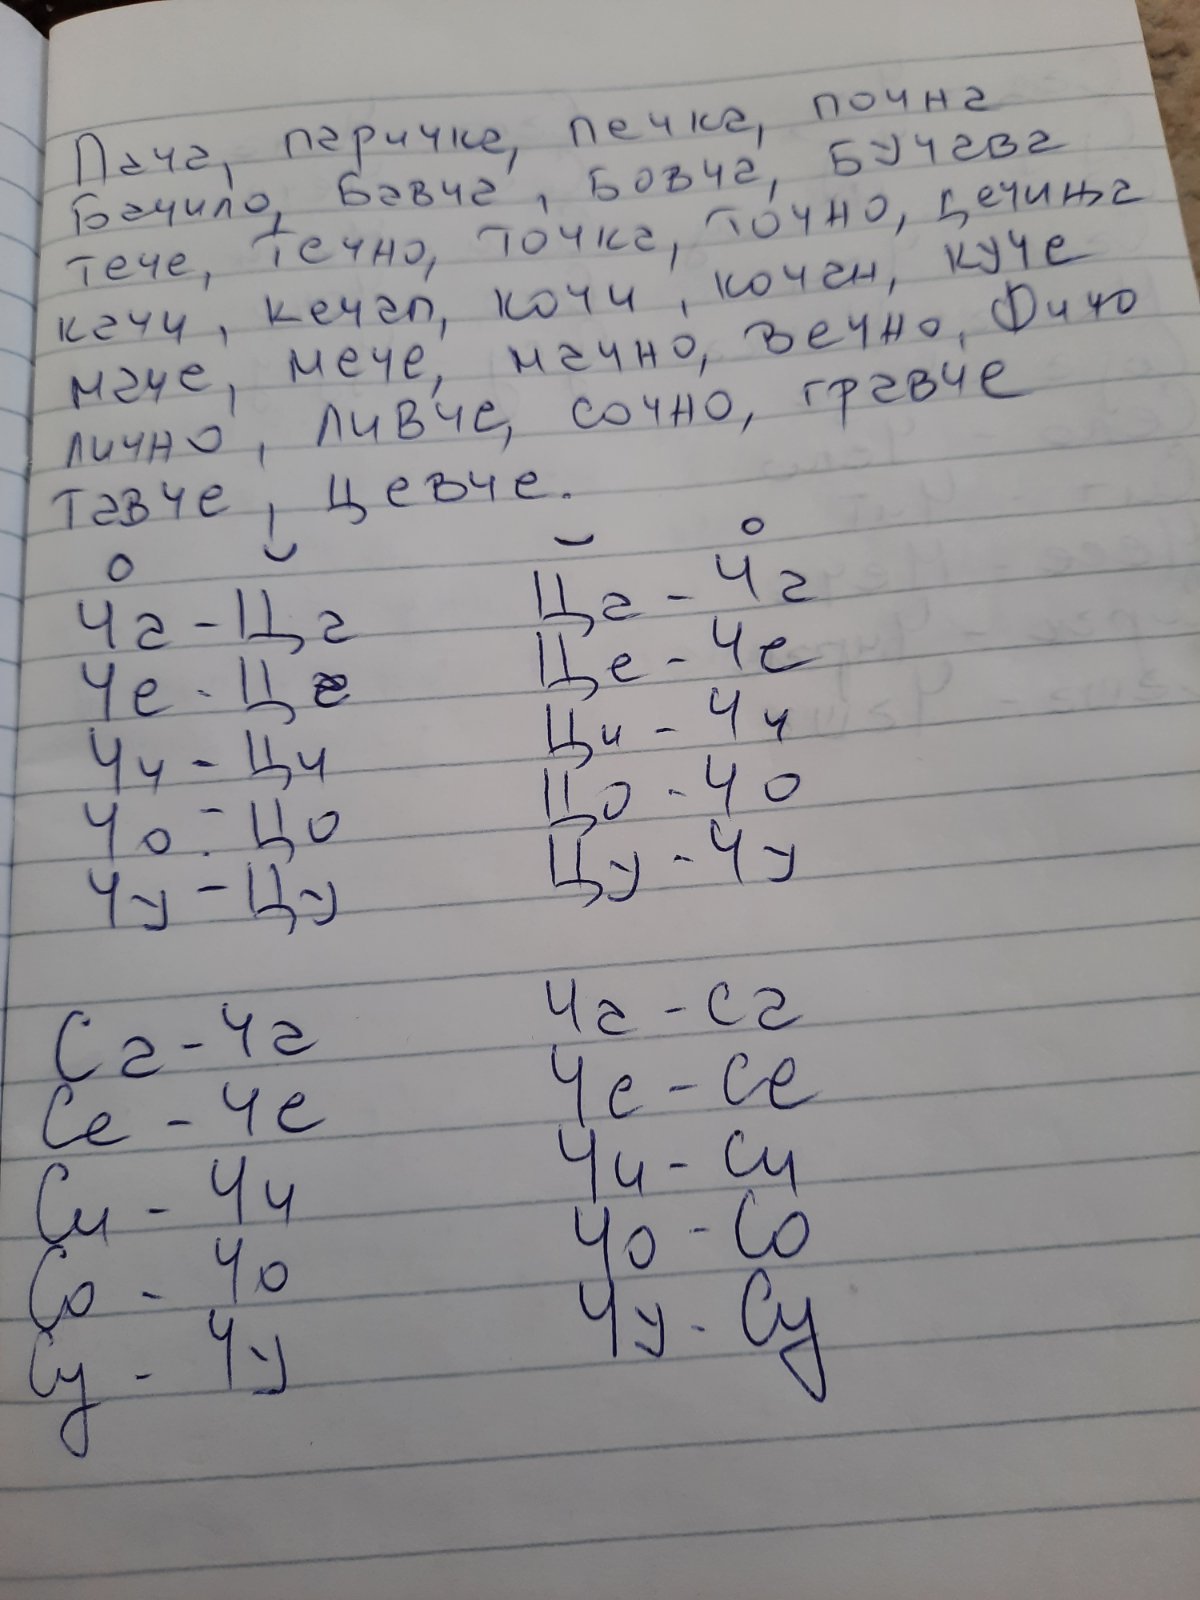 Пача, паричка, печка, почна
Бачило, Бавча, Бовча, Бучава
тече, течно, точка, точно, дечиња
качи, кечап, кочи, кочан, куче
маче, мече, мачно, вечно, Фичо
лично, ливче, сочно, гравче
тавче, цевче.
Ча - Ца Ца - Ча
Че - Це Це - Че
Чи - Ци Ци - Чи
Чо - Цо Цо - Чо
Чу - Цу Цу - Чу
Са - Ча Ча - Са
Се - Че Че - Се
Си - Чи Чи - Си
Со - Чо Чо - Со
Су - Чу Чу - Су